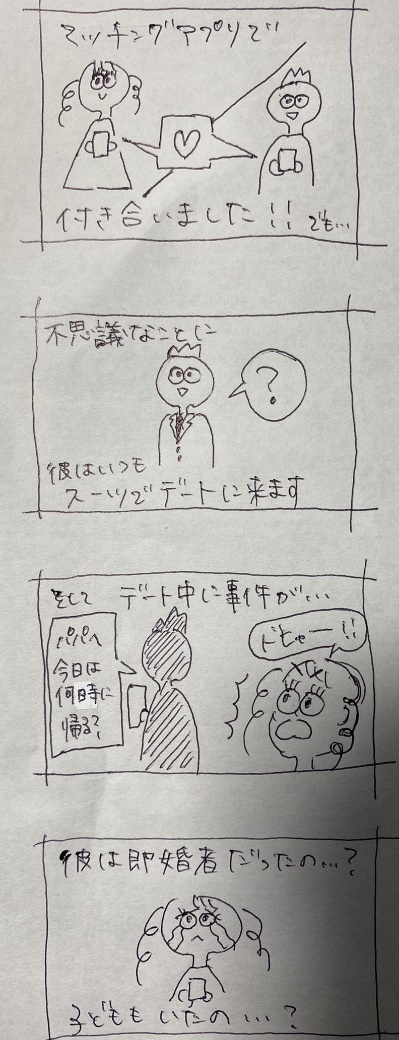 マッチングアプリで
付き合いました!! でも…
不思議なことに
?
彼はいつも
スーツでデートに来ます
そして デート中に事件が…
パパへ
今日は
何時に
帰る?
ドヒャー!!
彼は即婚者だったの…?
子どももいたの…?